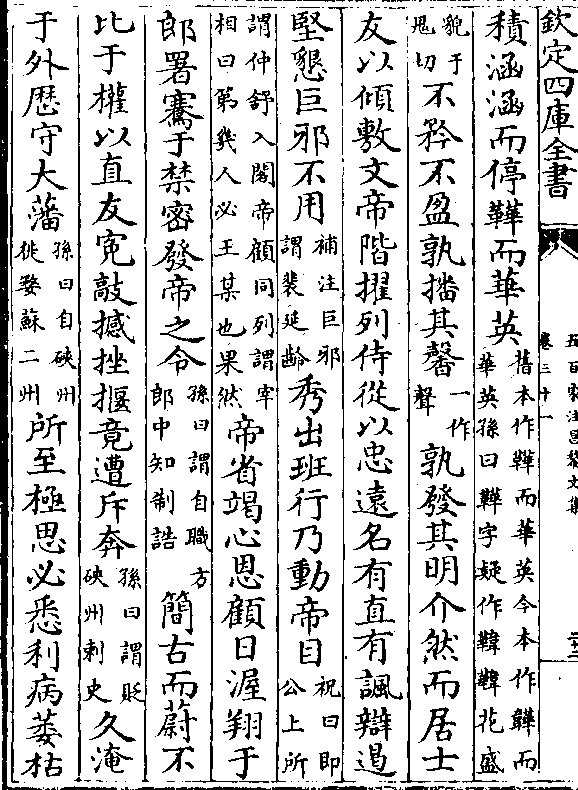 欽定四庫全書
五百家注昌黎文集
卷三十一
二十二
積涵涵而停韡而華英舊本作韡而華英今本作韡而華英孫曰韡字疑作韡韡花盛
貌于鬼切不矜不盈孰播其馨一作聲孰發其明介然而居士
友以傾敷文帝階擢列侍從以忠遠名有直有諷辯遏
堅懇巨邪不用補注巨邪謂裴延齡秀出班行乃動帝目祝曰即公上所
謂仲舒入閣帝顧同列謂宰相曰第幾人必王某也果然帝省竭心恩顧日渥翔于
郎署騫于禁密發帝之令孫曰謂自職方郎中知制誥簡古而蔚不
比于權以直友冤敲撼挫揠竟遭斥奔孫曰謂貶硤州刺史久淹
于外歷守大藩孫曰自硤州徙婺蘇二州所至極思必悉利病萎枯